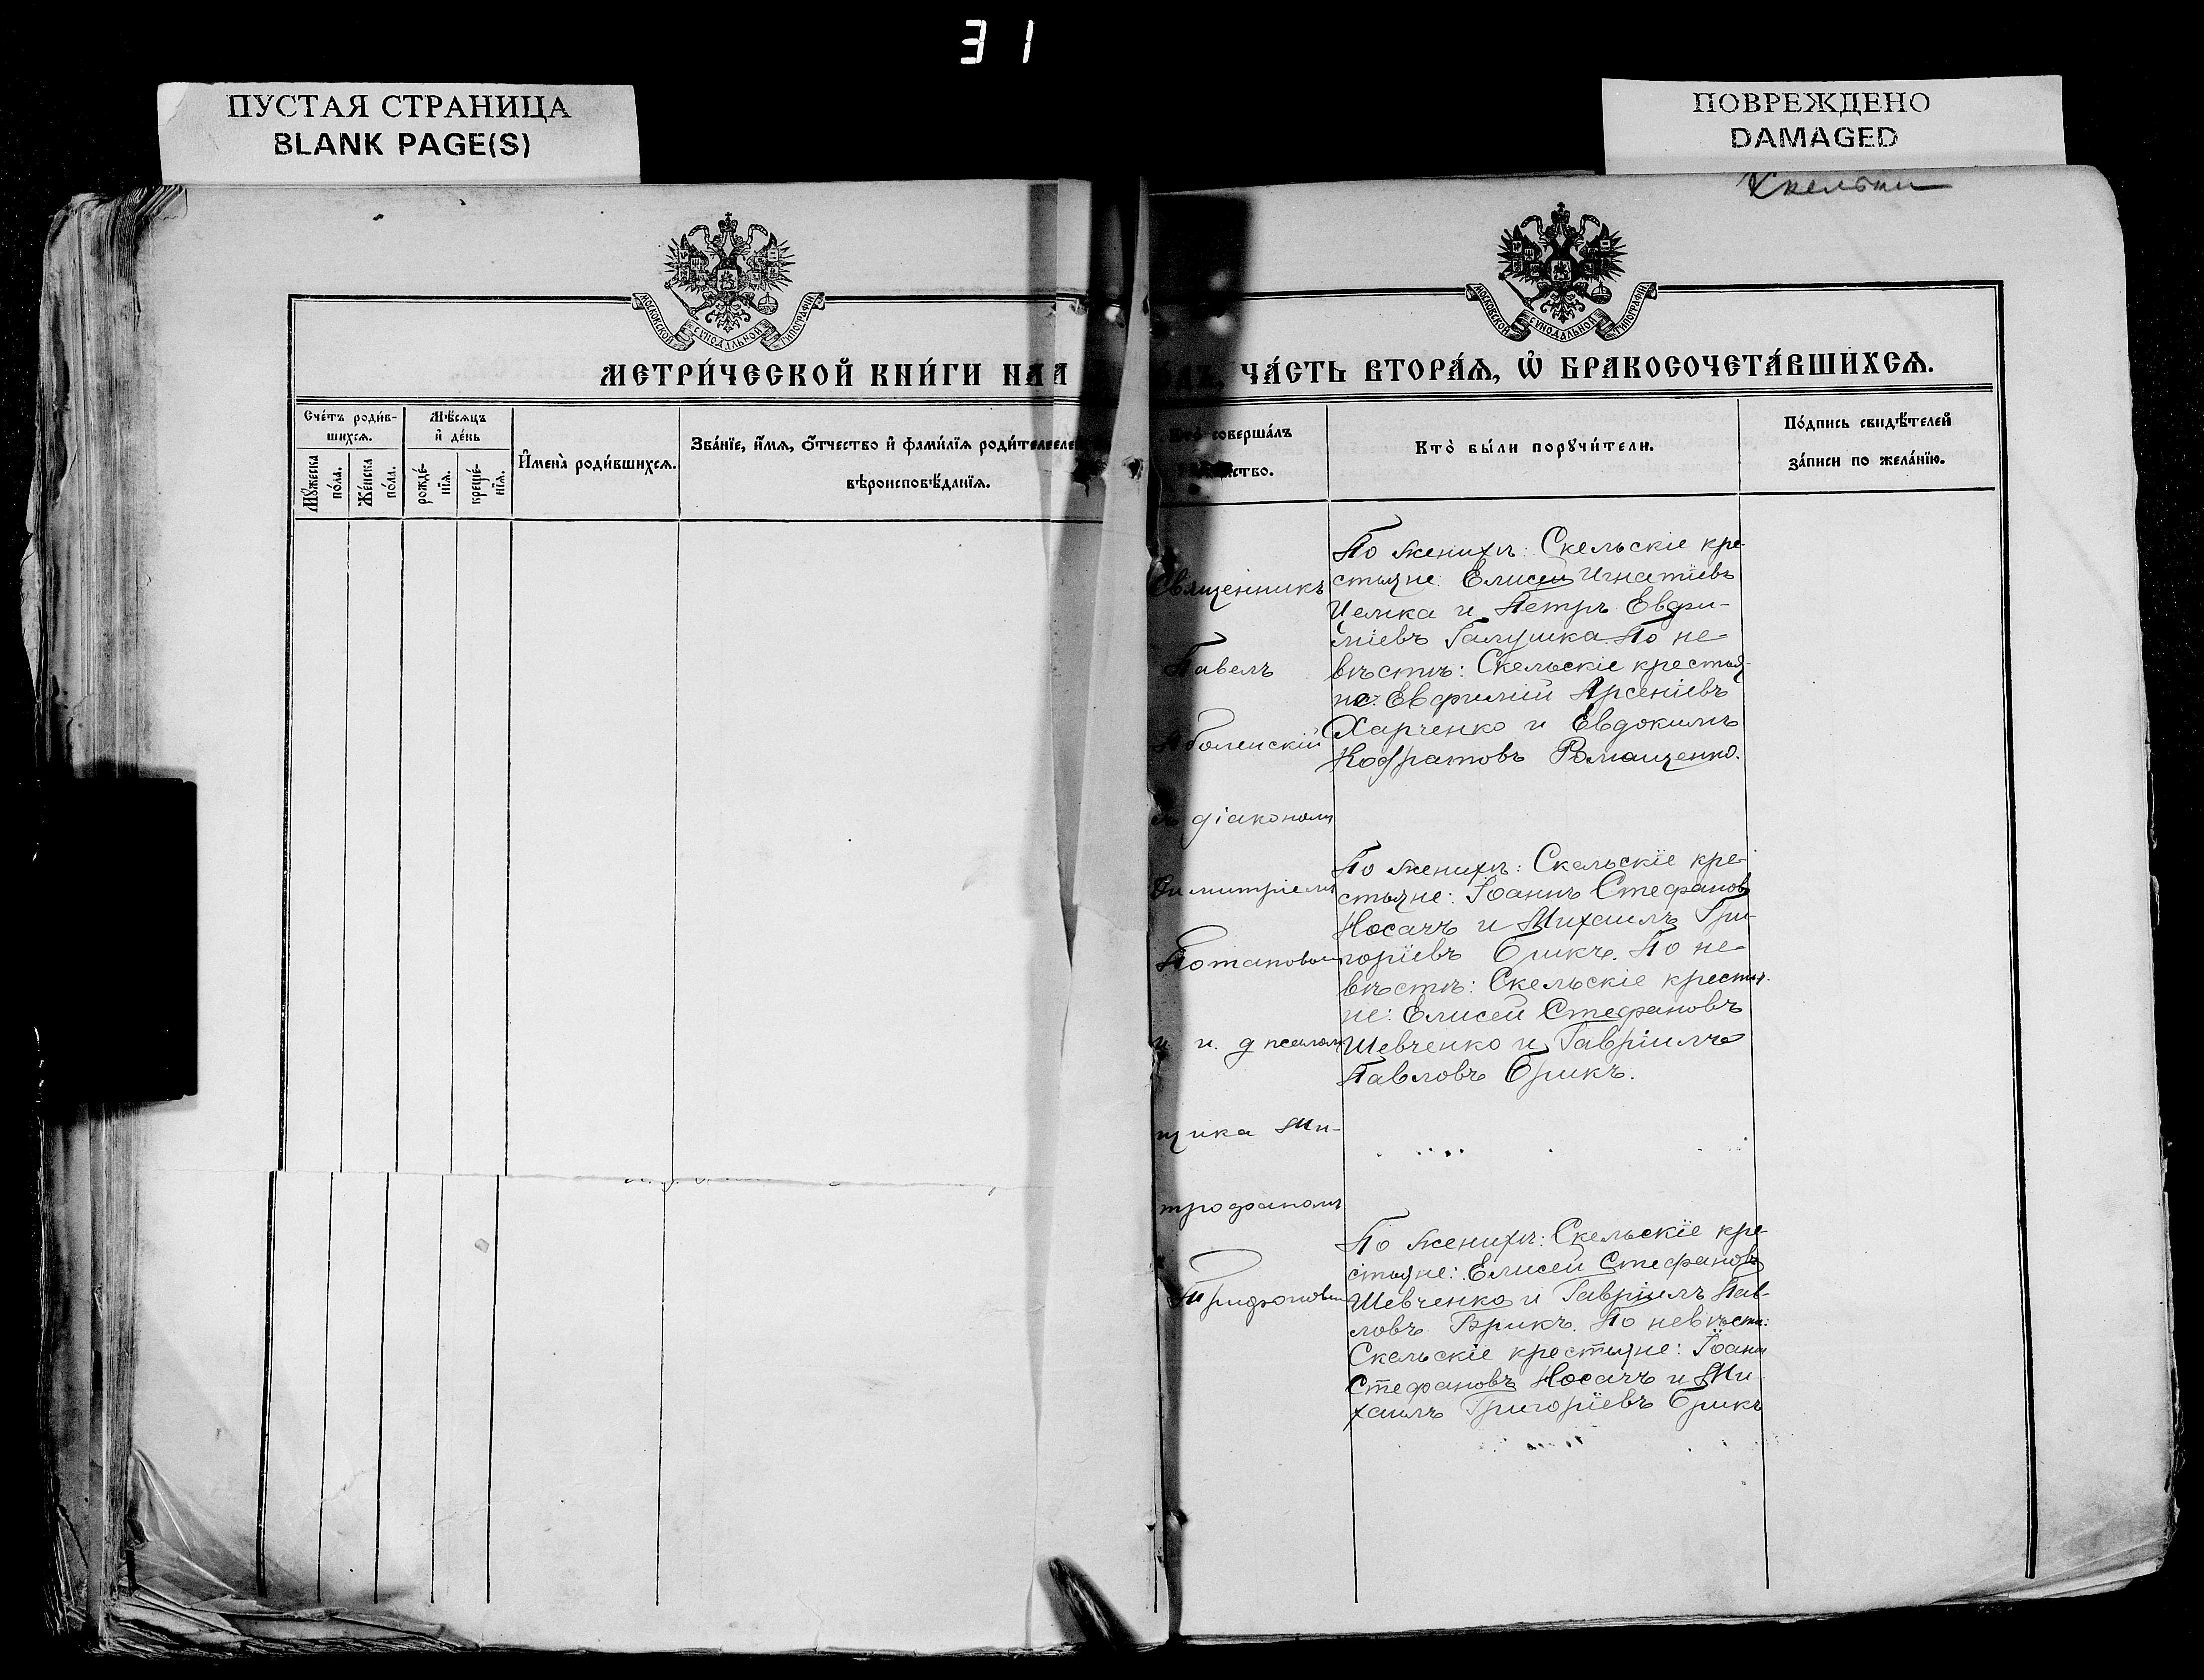 31
ПУСТАЯ СТРАНИЦА
BLANK PAGE(S)
ПОВРЕЖДЕНО
DAMAGED
МОСКОВСКОЙ СѴНОДАЛЬНОЙ ТИПОГРАФІИ
МЕТРИ́ЧЕСКОЙ КНИ́ГИ НА
Сче́тъ роди́в-
шихсѧ.
Мꙋ́жеска
по́ла.
Же́нска
по́ла.
Мѣ́сѧцъ
и҆ де́нь
рожде́-
нїѧ.
креще́-
нїѧ.
И҆мена̀ роди́вшихсѧ.
Зва́нїе, и҆́мѧ, ѻ҆́тчество и҆ фами́лїѧ роди́теле
вѣроисповѣ́данїѧ.
Скельки
МОСКОВСКОЙ СѴНОДАЛЬНОЙ ТИПОГРАФІИ
ЧА́СТЬ ВТОРА́Ѧ, Ѽ БРАКОСОЧЕТА́ВШИХСѦ.
соверша́лъ
ство.
Кто̀ бы́ли порꙋчи́тели.
По́дпись свидѣ́телей
за́писи по жела́нїю.
Священникъ
Павелъ
Аболенскій
съ діакономъ
Димитріемъ
Потаповым
и и. д псалом
щика Ми-
трофаномъ
Трифоновым
По женихѣ: Скельскіе кре-
стьяне: Елисей Игнатіевъ
и Петръ Евфи-
міевъ Галушка. По не-
вѣстѣ: Скельскіе крестья-
не: Евфимій Арсеніевъ
Харченко и Евдокимъ
Кодратовъ Ромащенко.
По женихѣ: Скельскіе кре-
стьяне: Іоаннъ Стефановъ
Носачъ и Михаилъ Гри-
горіевъ Брикъ. По не-
вѣстѣ: Скельскіе крестья-
не: Елисей Стефановъ
Шевченко и Гавріилъ
Павловъ Брикъ.
По женихѣ: Скельскіе кре-
стьяне: Елисей Стефановъ
Шевченко и Гавріилъ Пав-
ловъ Брикъ. По невѣстѣ:
Скельскіе крестьяне: Іоанн
Стефановъ Носачъ и Ми
хаилъ Григоріевъ Брикъ